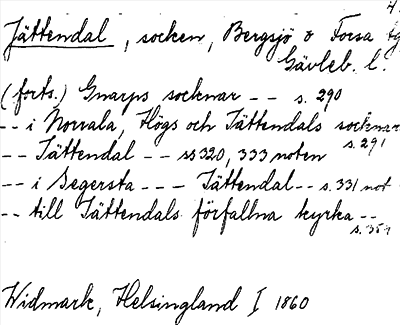 4.
Jättendal, socken, Bergsjö o Forsa tg
Gävleb. l.
(forts.) Gnarps socknar -- s. 290
-- i Norrala, Högs och Jättendals socknar
s. 291
-- Jättendal -- ss 320, 333 noten
-- i Segersta --- Jättendal -- s. 331 not
-- till Jättendals förfallna kyrka --
s. 354
Widmark, Helsingland I 1860